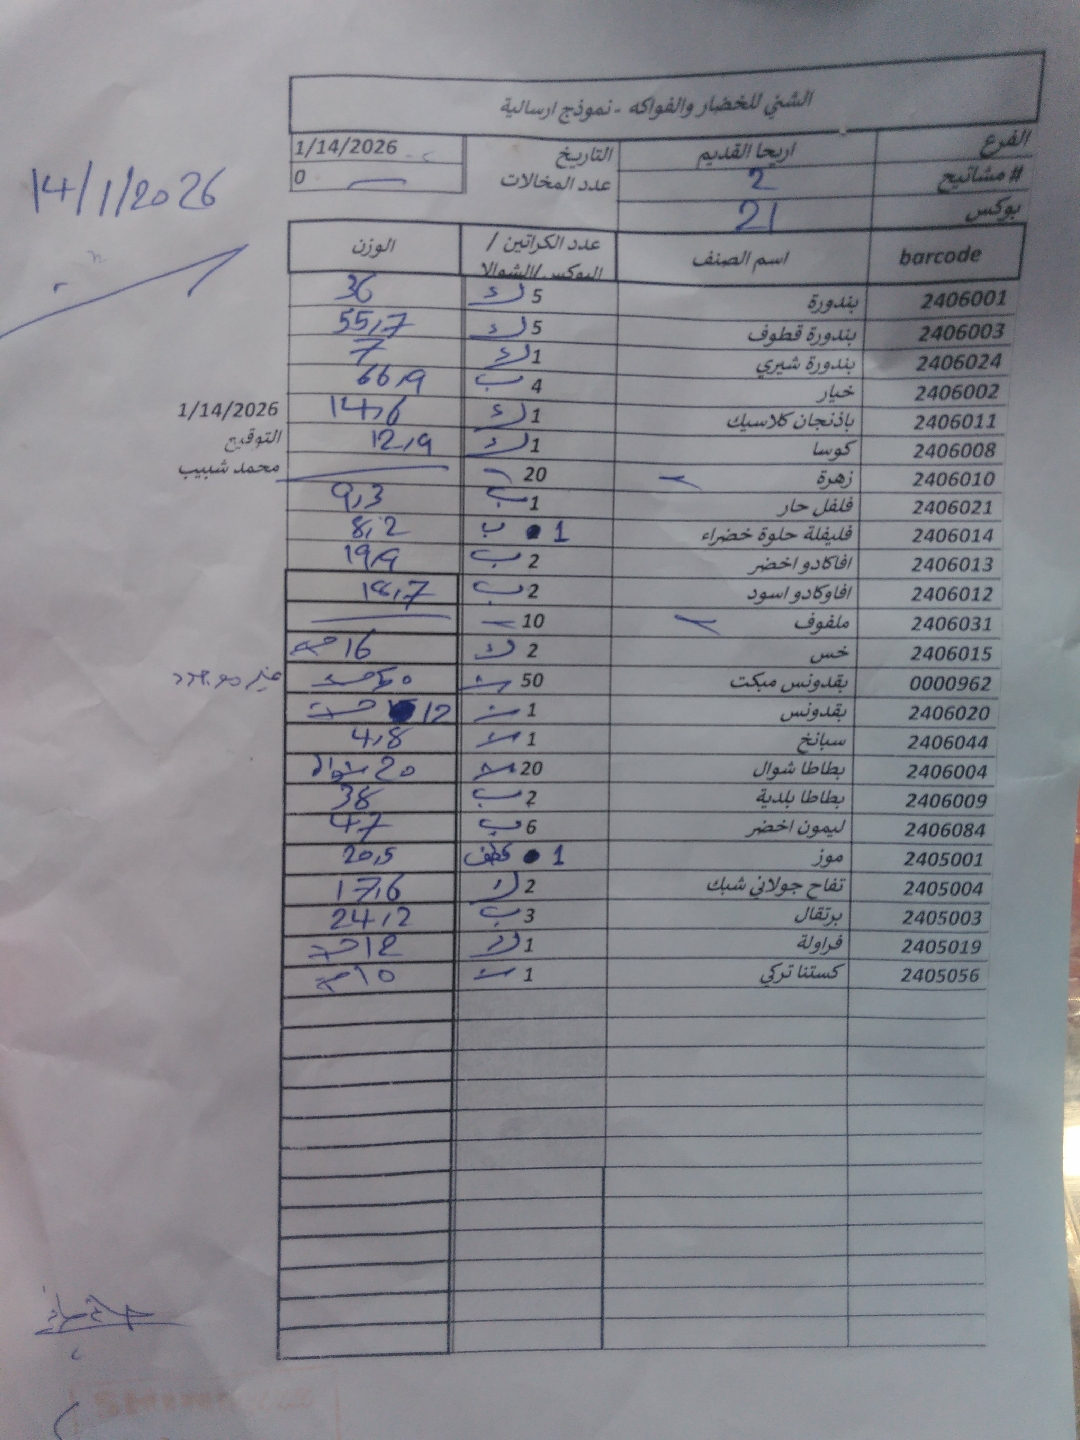 الشني للخضار والفواكه - نموذج ارسالية
الفرع اريحا القديم التاريخ 1/14/2026
# مشاتيح 2 عدد المخالات 0
بوكس 21
14/1/2026
barcode اسم الصنف عدد الكراتين / البوكس/الشوالا الوزن
2406001 بندورة 5 ك 36
2406003 بندورة قطوف 5 ك 55,7
2406024 بندورة شيري 1 ك 7
2406002 خيار 4 ب 66,9
2406011 باذنجان كلاسيك 1 ك 14,6
1/14/2026
2406008 كوسا 1 ك 12,9
التوقيع
2406010 زهرة 20
محمد شبيب
2406021 فلفل حار 1 ب 9,3
2406014 فليفلة حلوة خضراء 1 ب 8,2
2406013 افاكادو اخضر 2 ب 19,9
2406012 افاوكادو اسود 2 ب 18,7
2406031 ملفوف 10
2406015 خس 2 ك 16
0000962 بقدونس مبكت 50
2406020 بقدونس 1 12
2406044 سبانخ 1 4,8
2406004 بطاطا شوال 20 20 شوال
2406009 بطاطا بلدية 2 ب 38
2406084 ليمون اخضر 6 ب 47
2405001 موز 1 20,5
2405004 تفاح جولاني شبك 2 ك 17,6
2405003 برتقال 3 ب 24,2
2405019 فراولة 1 ك 12
2405056 كستنا تركي 1 10